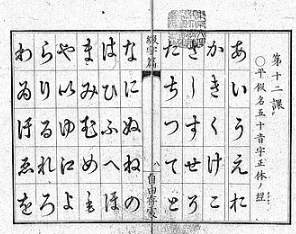 第十二課
〇平假名五十音字正体ノ
あいうえお
かきくけこ
さしすせそ
たちつてと
綴字篇
八
なにぬねの
はひふへほ
まみむめも
や以ゆ江よ
らりるれろ
わゐゑを